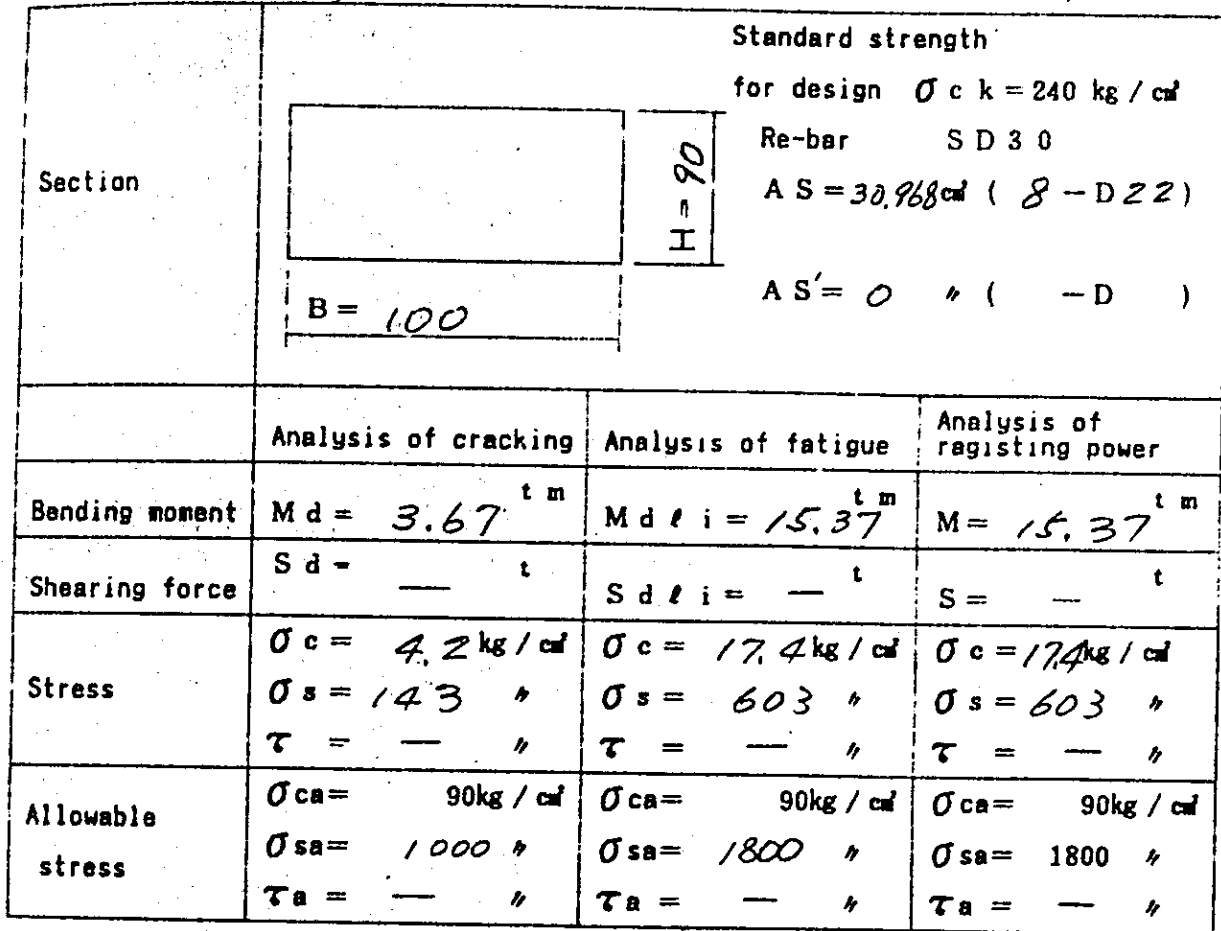 Standard strength
for design σ c k = 240 kg / cm²
Re-bar S D 3 0
Section
H = 90
A S = 30.968 cm² ( 8 - D 22 )
A S' = 0 〃 ( - D )
B = 100
Analysis of cracking
Analysis of fatigue
Analysis of
ragisting power
Bending moment
M d = 3.67 t m
M d ℓ i = 15.37 t m
M = 15.37 t m
Shearing force
S d = — t
S d ℓ i = — t
S = — t
Stress
σ c = 4.2 kg / cm²
σ s = 143 〃
τ = — 〃
σ c = 17.4 kg / cm²
σ s = 603 〃
τ = — 〃
σ c = 17.4 kg / cm²
σ s = 603 〃
τ = — 〃
Allowable
stress
σ ca = 90 kg / cm²
σ sa = 1000 〃
τ a = — 〃
σ ca = 90 kg / cm²
σ sa = 1800 〃
τ a = — 〃
σ ca = 90 kg / cm²
σ sa = 1800 〃
τ a = — 〃